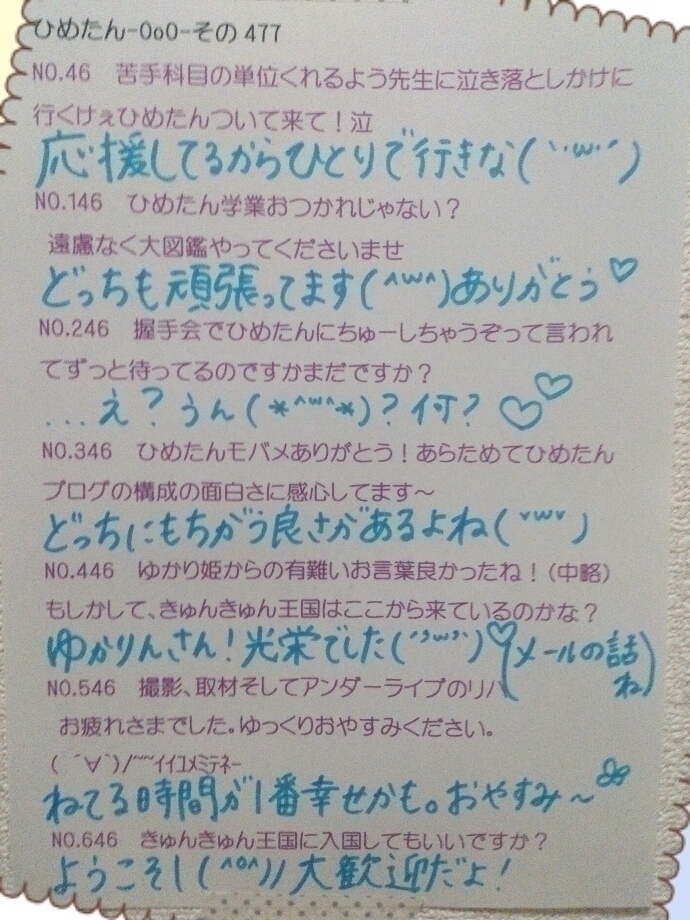 ひめたん-OoO-その477
NO.46　苦手科目の単位くれるよう先生に泣き落としかけに
行くけぇひめたんついて来て！泣
応援してるからひとりで行きな(｀･ω･´)
NO.146　ひめたん学業おつかれじゃない？
遠慮なく大図鑑やってくださいませ
どっちも頑張ってます(^ω^)ありがとう♡
NO.246　握手会でひめたんにちゅーしちゃうぞって言われ
てずっと待ってるのですがまだですか？
...え？うん(*^ω^*)？何？♡♡
NO.346　ひめたんモバメありがとう！あらためてひめたん
ブログの構成の面白さに感心してます～
どっちにもちがう良さがあるよね(˘ω˘)
NO.446　ゆかり姫からの有難いお言葉良かったね！（中略）
もしかして、きゅんきゅん王国はここから来ているのかな？
ゆかりんさん！光栄でした(´･ω･`)♡(メールの話ね)
NO.546　撮影、取材そしてアンダーライブのリハ
お疲れさまでした。ゆっくりおやすみください。
(　´∀｀)/~~~ｲｲﾕﾒﾐﾃﾈｰ
ねてる時間が1番幸せかも。おやすみ～
NO.646　きゅんきゅん王国に入国してもいいですか？
ようこそ！(^o^)//大歓迎だよ！